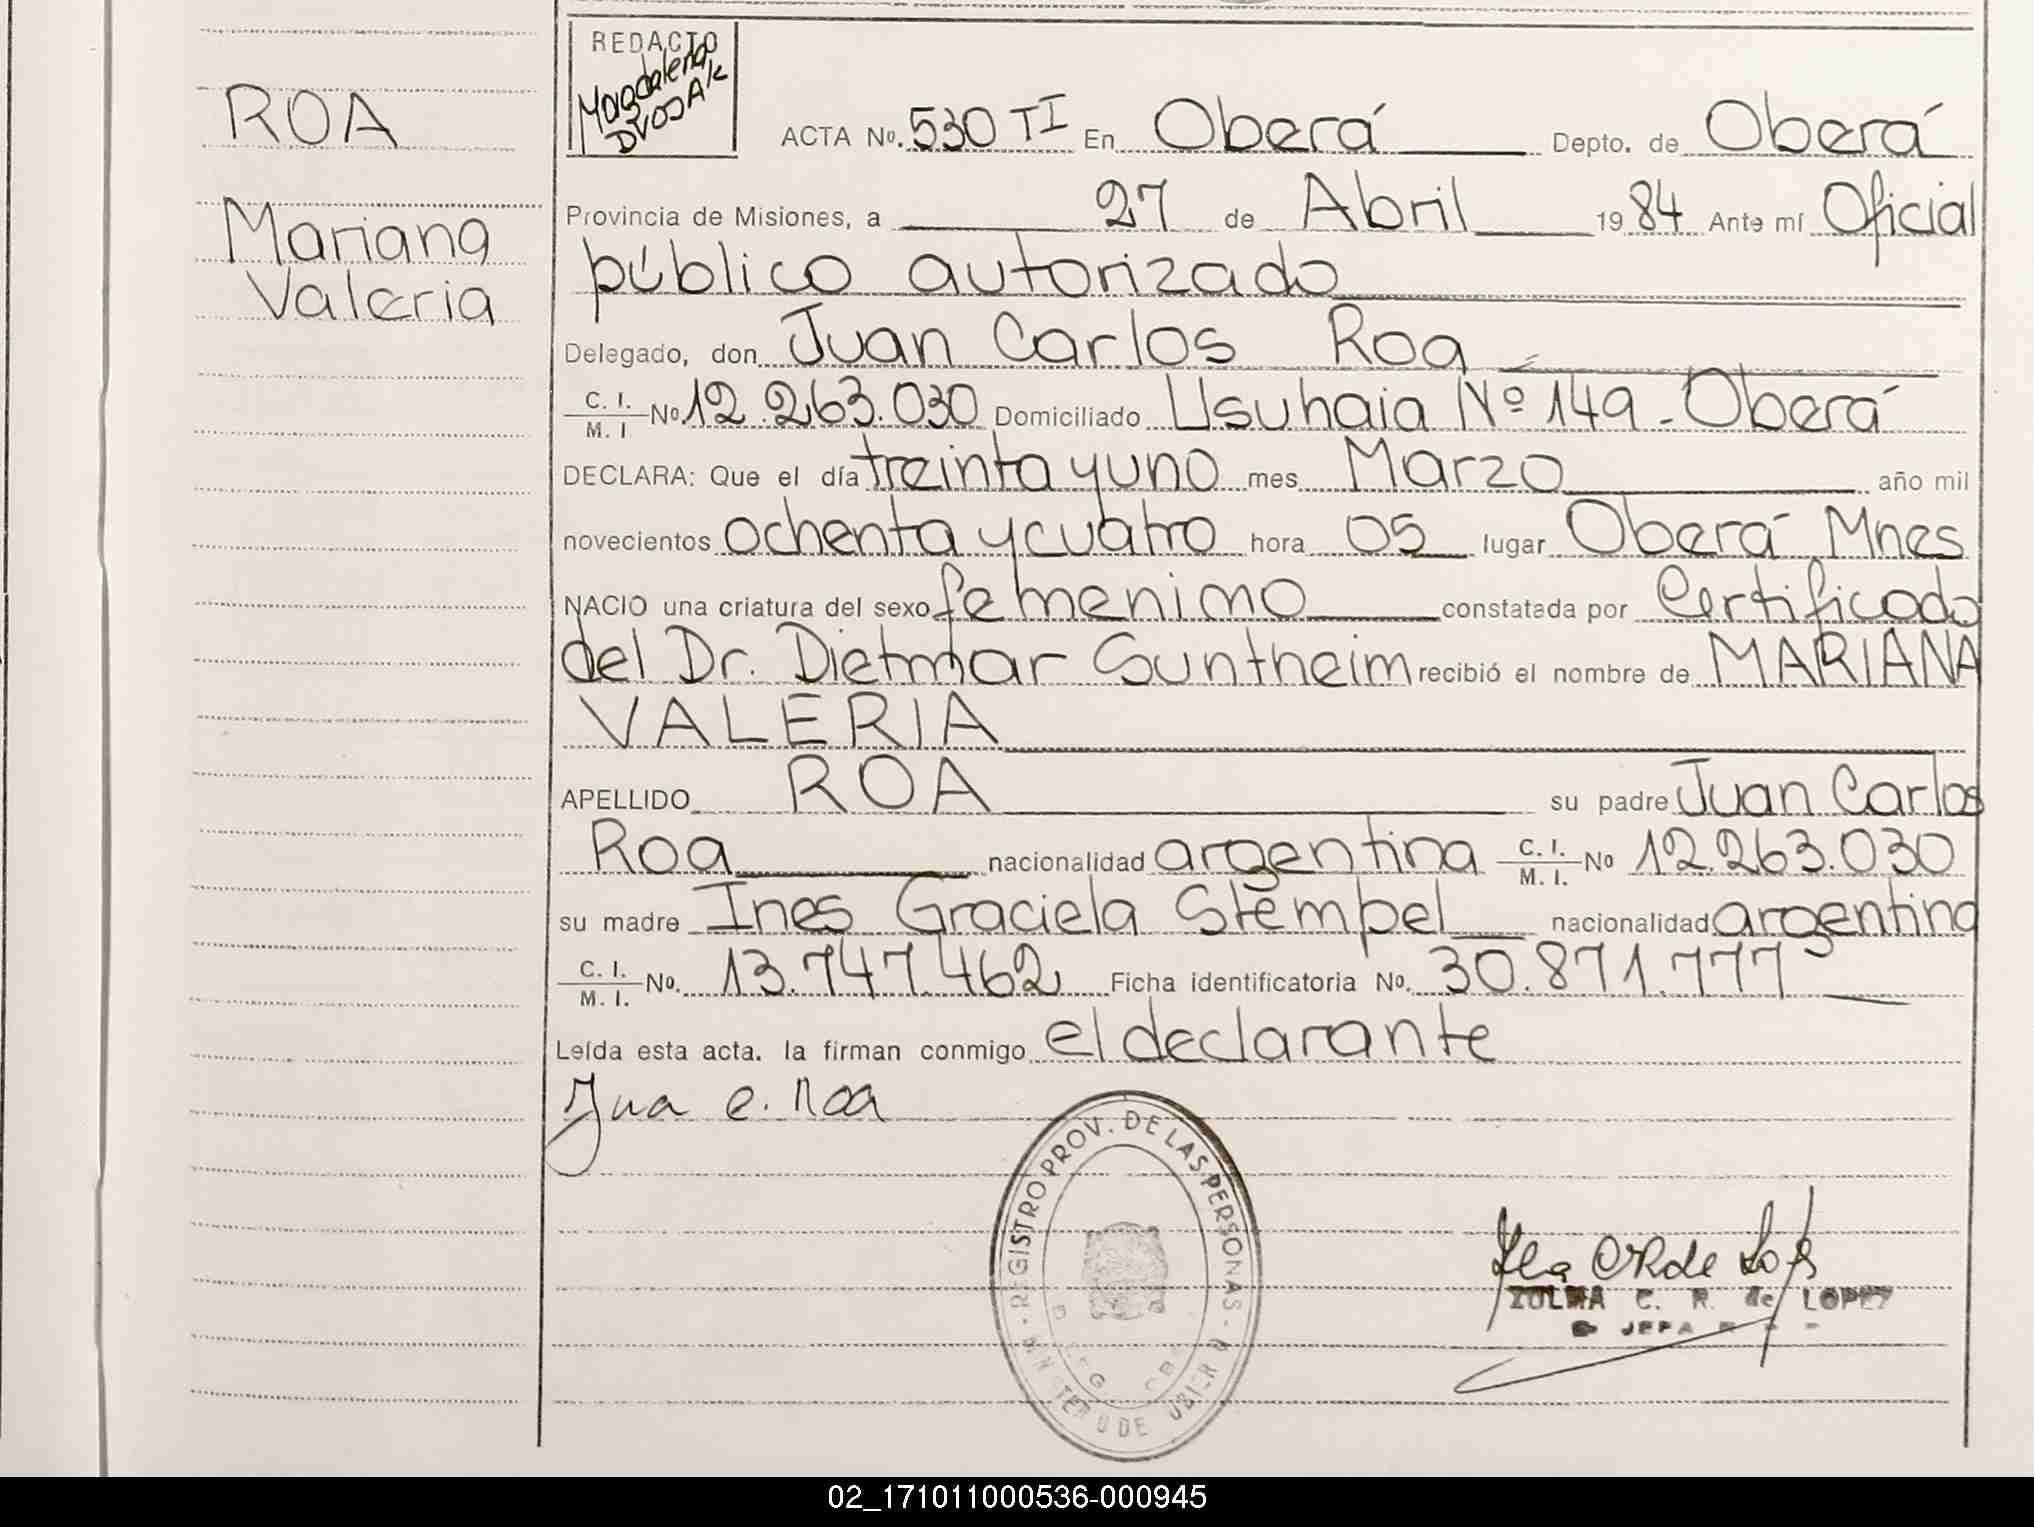 ROA
Mariana
Valeria
REDACTO
Magdalena
ACTA Nº. 530 TI En Oberá Depto. de Oberá
Provincia de Misiones, a 27 de Abril 1984 Ante mí Oficial
público autorizado
Delegado, don Juan Carlos Roa
C. I. / M. I Nº 12.263.030 Domiciliado Usuhaia Nº 149 - Oberá
DECLARA: Que el día treinta y uno mes Marzo año mil
novecientos ochenta y cuatro hora 05 lugar Oberá Mnes
NACIO una criatura del sexo femenino constatada por Certificado
del Dr. Dietmar Suntheim recibió el nombre de MARIANA
VALERIA
APELLIDO ROA su padre Juan Carlos
Roa nacionalidad argentina C. I. / M. I. Nº 12.263.030
su madre Ines Graciela Stempel nacionalidad argentina
C. I. / M. I. Nº. 13.747.462 Ficha identificatoria Nº. 30.871.777
Leída esta acta. la firman conmigo el declarante
Jua C. Roa
REGISTRO PROV. DE LAS PERSONAS
ZULMA C. R. de LOPEZ
02_171011000536-000945